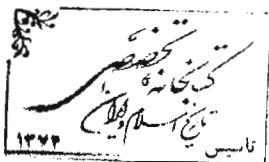 کتابخانه تخصصی
تاریخ اسلام و ایران
تاسیس ۱۳۷۲